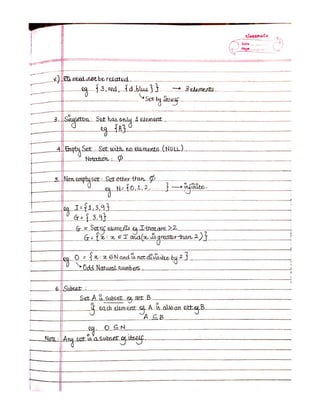 classmate
Date
Page
c) Els need not be related.
eg {3, red, {d, blue}} → 3 elements
↳ Set by itself
3. Singleton : Set has only 1 element.
eg {A}
4. Empty Set : Set with no elements (NULL)
Notation : ∅
5. Non empty set : Set other than ∅
eg. N = {0, 1, 2, } → infinite.
eg I = {1, 3, 9}
G = {3, 9}
G = Set of elements of I that are >2.
G = {x : x ∈ I and (x is greater than 2)}
eg. O = {x : x ∈ N and is not divisible by 2}
↳ Odd Natural numbers.
6. Subset :
Set A is subset of set B
if each element of A is also an elt of B.
A ⊆ B
eg. O ⊆ N
Note : Any set is a subset of itself.